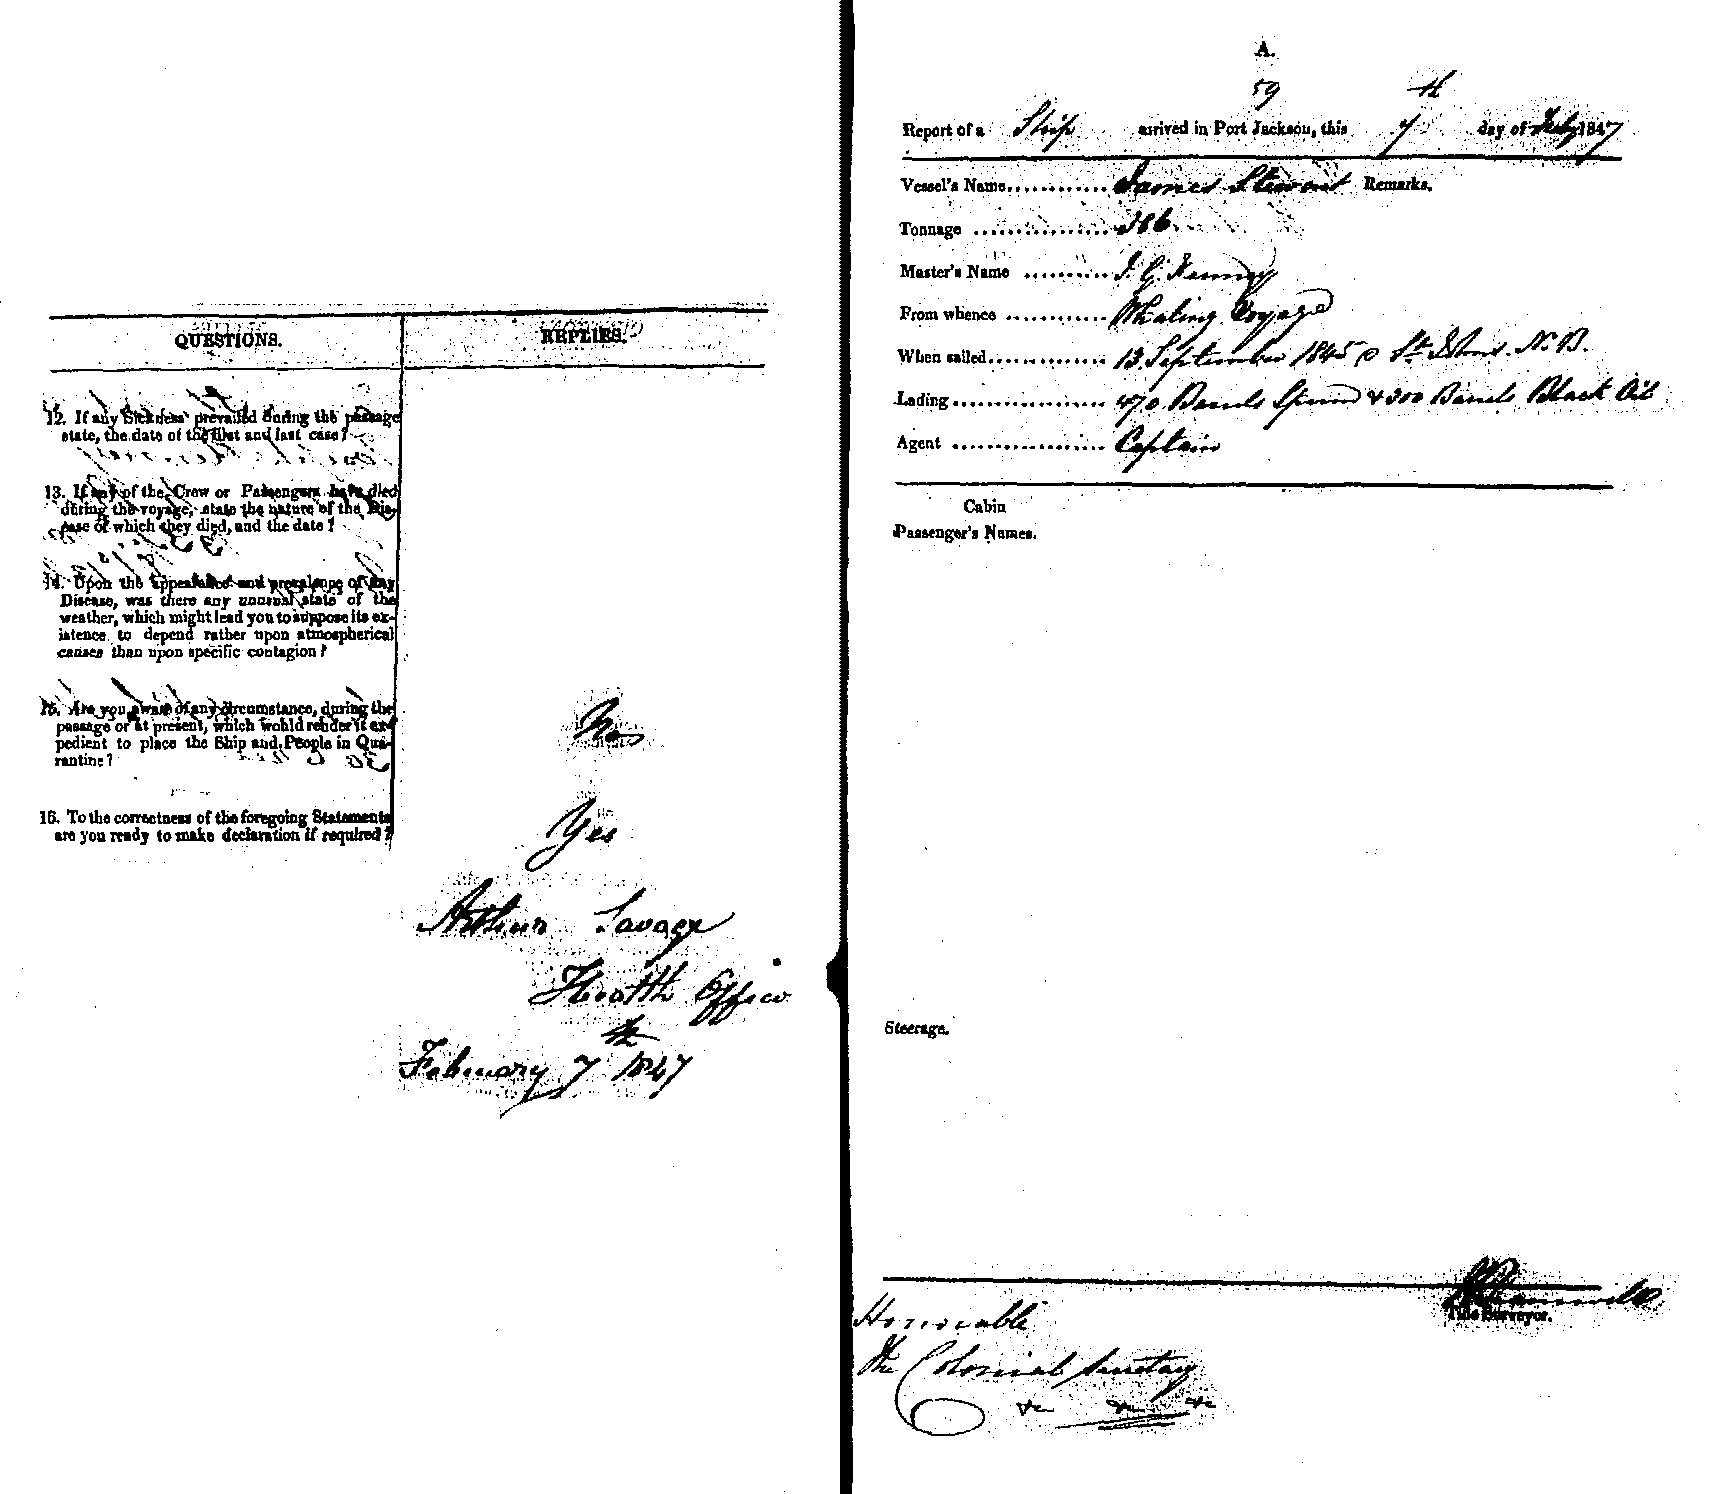 QUESTIONS. REPLIES.
12. If any Sickness prevailed during the passage
state, the date of the first and last case?
13. If any of the Crew or Passengers have died
during the voyage, state the nature of the Dis-
ease of which they died, and the date?
14. Upon the appearance and prevalence of any
Disease, was there any unusual state of the
weather, which might lead you to suppose its ex-
istence to depend rather upon atmospherical
causes than upon specific contagion?
15. Are you aware of any circumstance, during the
passage or at present, which would render it ex-
pedient to place the Ship and People in Qua-
rantine?
No
16. To the correctness of the foregoing Statements
are you ready to make declaration if required?
Yes
Arthur Savage
Health Officer
February 7th 1847
A.
59
Report of a Ship arrived in Port Jackson, this 7th day of Feby 1847
Vessel's Name............ James Stewart Remarks.
Tonnage ................ 386
Master's Name .......... J. G. Kenney
From whence ............ Whaling Voyage
When sailed.............. 13 September 1845 St Johns. N. B.
Lading .................. 470 Barrels Sperm & 300 Barrels Black Oil
Agent .................. Captain
Cabin
Passenger's Names.
Steerage.
Tide Surveyor.
Honorable
The Colonial Secretary
&c &c &c